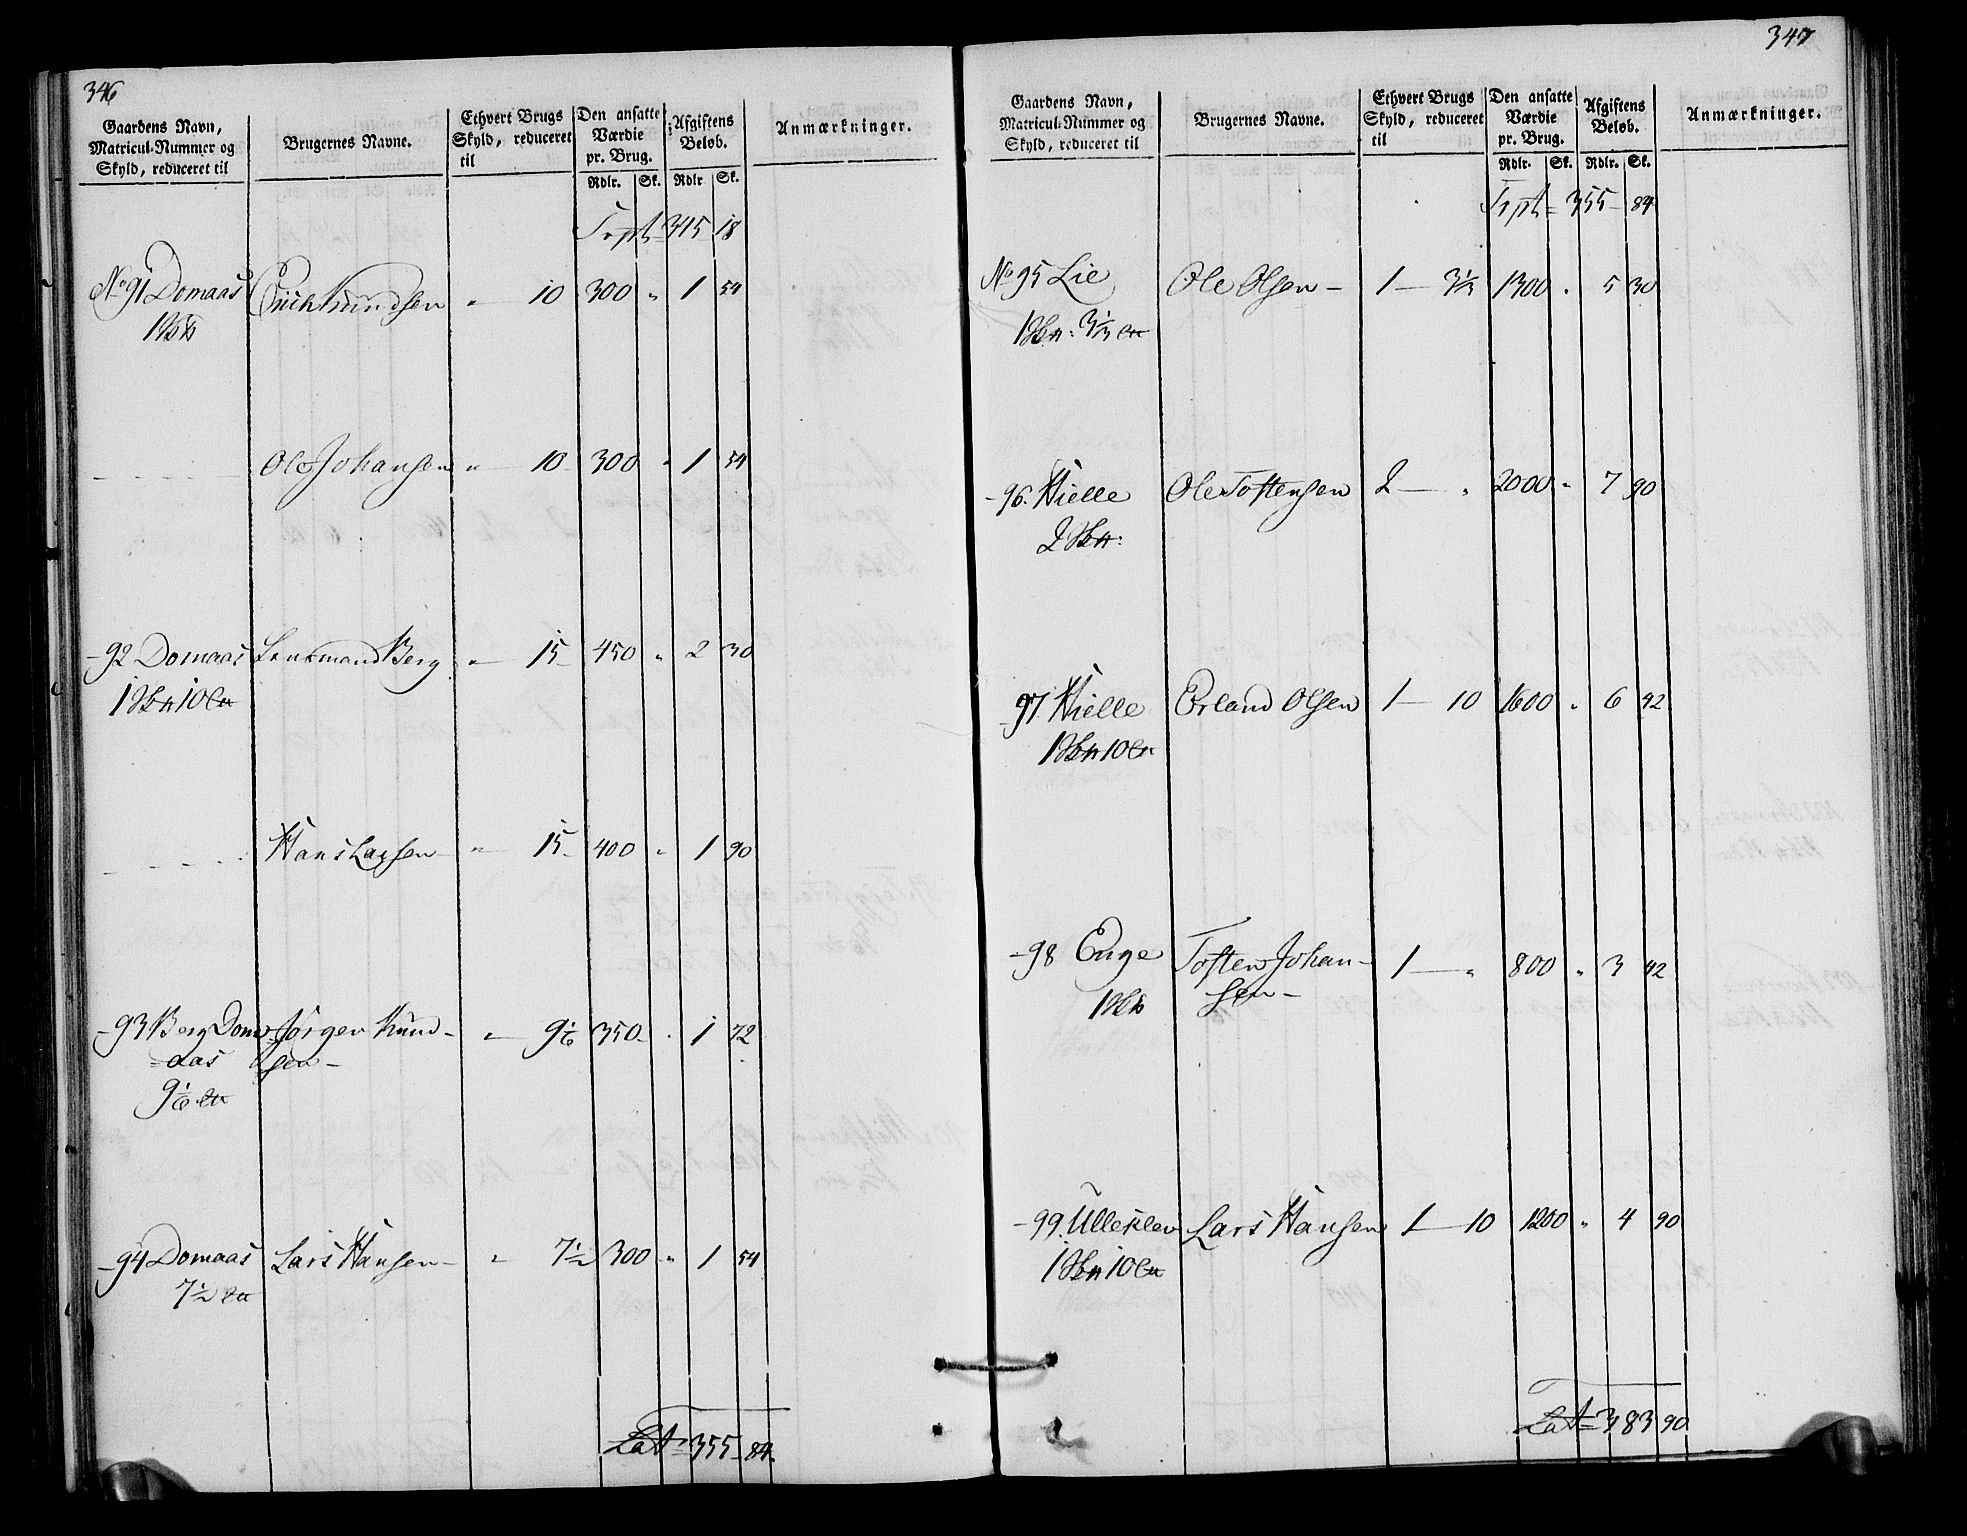 346
Gaardens Navn, Matricul-Nummer og Skyld, reduceret til
Brugernes Navne.
Ethvert Brugs Skyld, reduceret til
Den ansatte Værdie pr. Brug.
Afgiftens Beløb.
Anmærkninger.
Rdlr. Sk. Rdlr Sk.
Trpt= 345 18
No 91 Domaas Erich Knudsen " — 10 300 " 1 54
Ole Johansen " — 10 300 " 1 54
- 92 Domaas Lensmand Berg " — 15 450 " 2 30
Hans Larsen " — 15 400 " 1 90
- 93 Berg Dom= Jørgen Knud-
=aas sen — " — 9 1/6 350 " 1 72
9 1/6
- 94 Domaas Lars Hansen — " 7 1/2 300 " 1 54
7 1/2
Lat= 355 - 84.
347
Gaardens Navn, Matricul-Nummer og Skyld, reduceret til
Brugernes Navne.
Ethvert Brugs Skyld, reduceret til
Den ansatte Værdie pr. Brug.
Afgiftens Beløb.
Anmærkninger.
Rdlr. Sk. Rdlr. Sk.
Trpt= 355 - 84
No 95 Lie Ole Olsen — 1 — 3 1/3 1300 " 5 30
- 96. Hielle Ole Tostensen 2 — " 2000 " 7 90
- 97 Hielle Erland Olsen 1 — 10 1600 " 6 42
- 98 Enge Tosten Johan-
sen — 1 — " 800 " 3 42
- 99. Ulleklev Lars Hansen 1 — 10 1200 " 4 90
Lat= 383 90